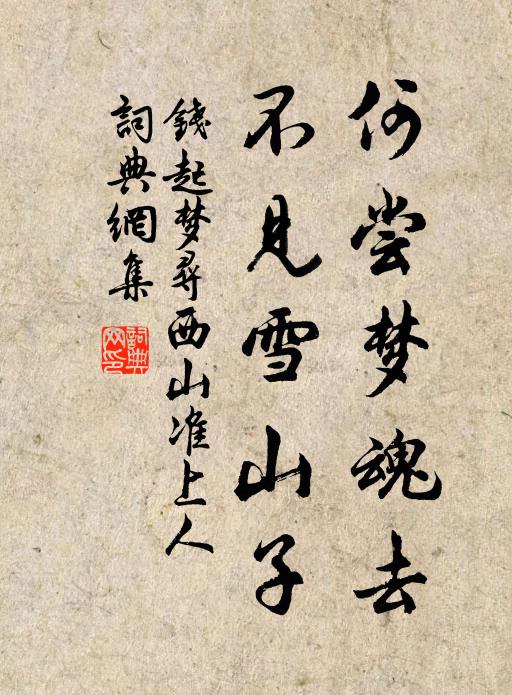 何尝梦魂去
不见雪山子
錢起梦尋西山准上人
詞典網集
詞典網印